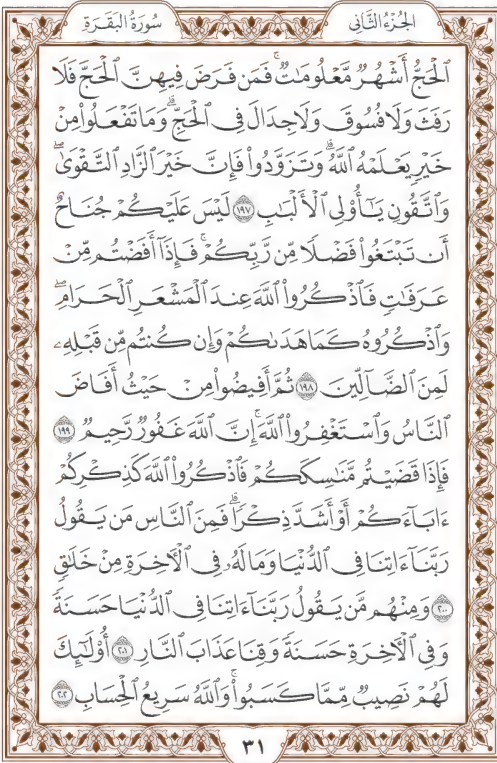 الجُزْءُ الثَّانِي
سُورَةُ البَقَرَةِ
ٱلْحَجُّ أَشْهُرٌ مَّعْلُومَٰتٌ ۚ فَمَن فَرَضَ فِيهِنَّ ٱلْحَجَّ فَلَا
رَفَثَ وَلَا فُسُوقَ وَلَا جِدَالَ فِى ٱلْحَجِّ ۗ وَمَا تَفْعَلُوا۟ مِنْ
خَيْرٍ يَعْلَمْهُ ٱللَّهُ ۗ وَتَزَوَّدُوا۟ فَإِنَّ خَيْرَ ٱلزَّادِ ٱلتَّقْوَىٰ ۚ
وَٱتَّقُونِ يَٰٓأُو۟لِى ٱلْأَلْبَٰبِ ١٩٧ لَيْسَ عَلَيْكُمْ جُنَاحٌ
أَن تَبْتَغُوا۟ فَضْلًا مِّن رَّبِّكُمْ ۚ فَإِذَآ أَفَضْتُم مِّنْ
عَرَفَٰتٍ فَٱذْكُرُوا۟ ٱللَّهَ عِندَ ٱلْمَشْعَرِ ٱلْحَرَامِ ۖ
وَٱذْكُرُوهُ كَمَا هَدَىٰكُمْ وَإِن كُنتُم مِّن قَبْلِهِۦ
لَمِنَ ٱلضَّآلِّينَ ١٩٨ ثُمَّ أَفِيضُوا۟ مِنْ حَيْثُ أَفَاضَ
ٱلنَّاسُ وَٱسْتَغْفِرُوا۟ ٱللَّهَ ۚ إِنَّ ٱللَّهَ غَفُورٌ رَّحِيمٌ ١٩٩
فَإِذَا قَضَيْتُم مَّنَٰسِكَكُمْ فَٱذْكُرُوا۟ ٱللَّهَ كَذِكْرِكُمْ
ءَابَآءَكُمْ أَوْ أَشَدَّ ذِكْرًا ۗ فَمِنَ ٱلنَّاسِ مَن يَقُولُ
رَبَّنَآ ءَاتِنَا فِى ٱلدُّنْيَا وَمَا لَهُۥ فِى ٱلْءَاخِرَةِ مِنْ خَلَٰقٍ
٢٠٠ وَمِنْهُم مَّن يَقُولُ رَبَّنَآ ءَاتِنَا فِى ٱلدُّنْيَا حَسَنَةً
وَفِى ٱلْءَاخِرَةِ حَسَنَةً وَقِنَا عَذَابَ ٱلنَّارِ ٢٠١ أُو۟لَٰٓئِكَ
لَهُمْ نَصِيبٌ مِّمَّا كَسَبُوا۟ ۚ وَٱللَّهُ سَرِيعُ ٱلْحِسَابِ ٢٠٢
٣١